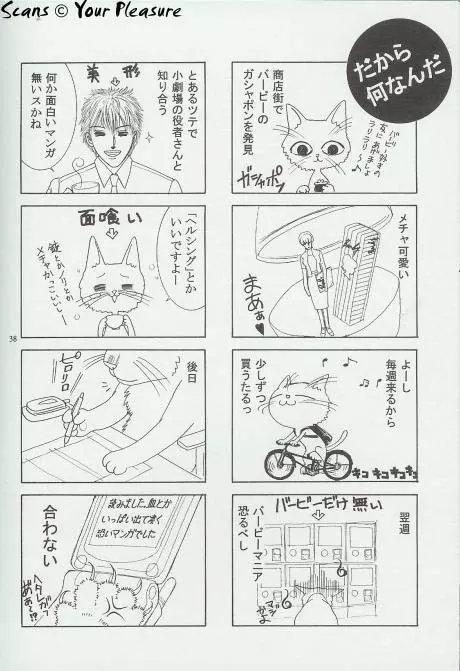 Scans © Your Pleasure
だから
何なんだ
商店街で
バービーの
ガシャポンを発見
バービー好きの
友にあげましょ
ラリラリ〜♪
ガシャポン
メチャ可愛い
まあぁ♥
よーし
毎週来るから
少しずつ
買うたるっ
キコ キコ キコ キコ
翌週
バービーだけ無い
バービーマニア
恐るべし
とあるツテで
小劇場の役者さんと
知り合う
美形
何か面白いマンガ
無いスかね
「ヘルシング」とか
いいですよー
面喰い
銃とかノリとか
メチャかっこいいしー
38
後日
ピロリロ
読みました。血とか
いっぱい出て凄く
恐いマンガでした
合わない
ヘタレがっ